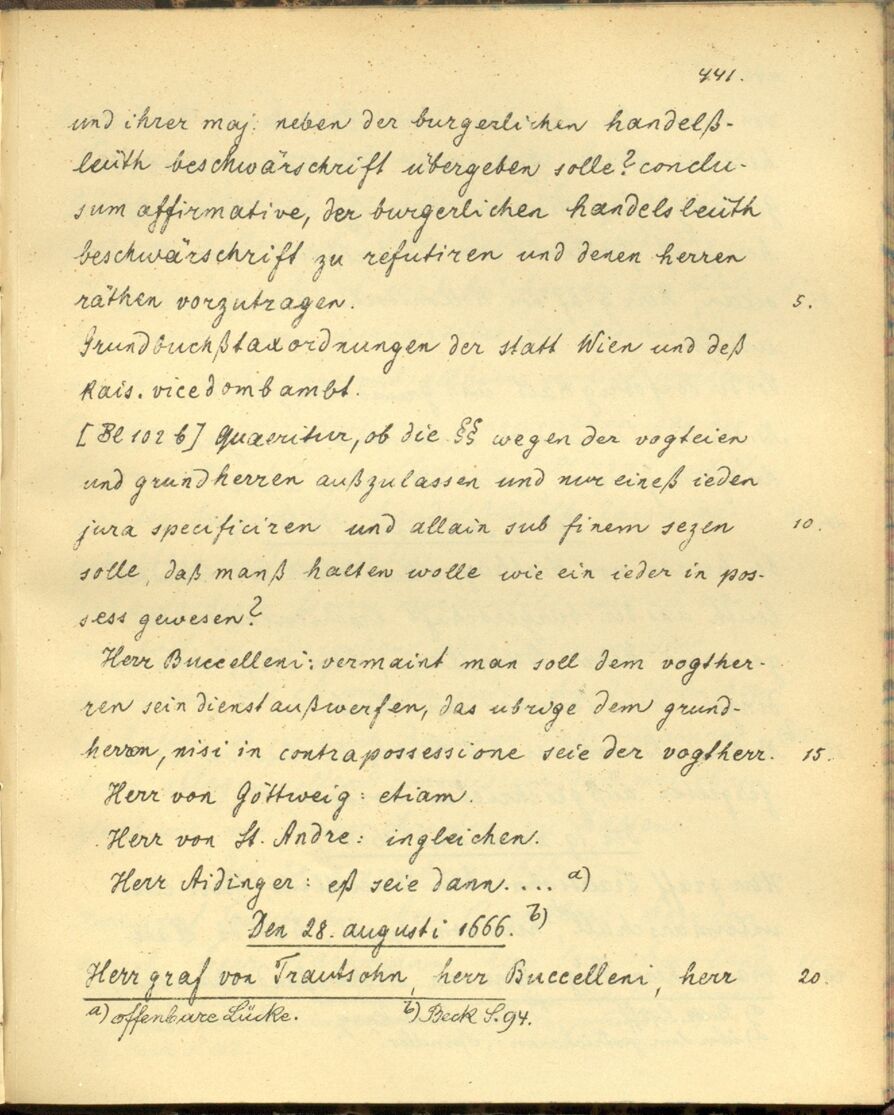 441.
und ihrer maj. neben der burgerlichen handelß-
leüth beschwärschrift übergeben solle? conclu-
sum affirmative, der burgerlichen handelsleüth
beschwärschrift zu refutiren und denen herren
räthen vorzutragen. 5.
Grundbuchßtaxordnungen der statt Wien und deß
kais. vicedombambt.
[Bl 102 b] Quaeritur, ob die §§ wegen der vogteien
und grundherren außzulassen und nur eineß ieden
jura specificiren und allain sub finem sezen 10.
solle, daß manß halten wolle wie ein ieder in pos-
sess gewesen?
Herr Buccelleni: vermaint man soll dem vogtsher-
ren sein dienst außwerfen, das ubrige dem grund-
herren, nisi in contrapossessione seie der vogtherr. 15.
Herr von Göttweig: etiam.
Herr von St. Andre: ingleichen.
Herr Aidinger: eß seie dann.... a)
Den 28. augusti 1666. b)
Herr graf von Trautsohn, herr Buccelleni, herr 20.
a) offenbare Lücke. b) Beck S. 94.